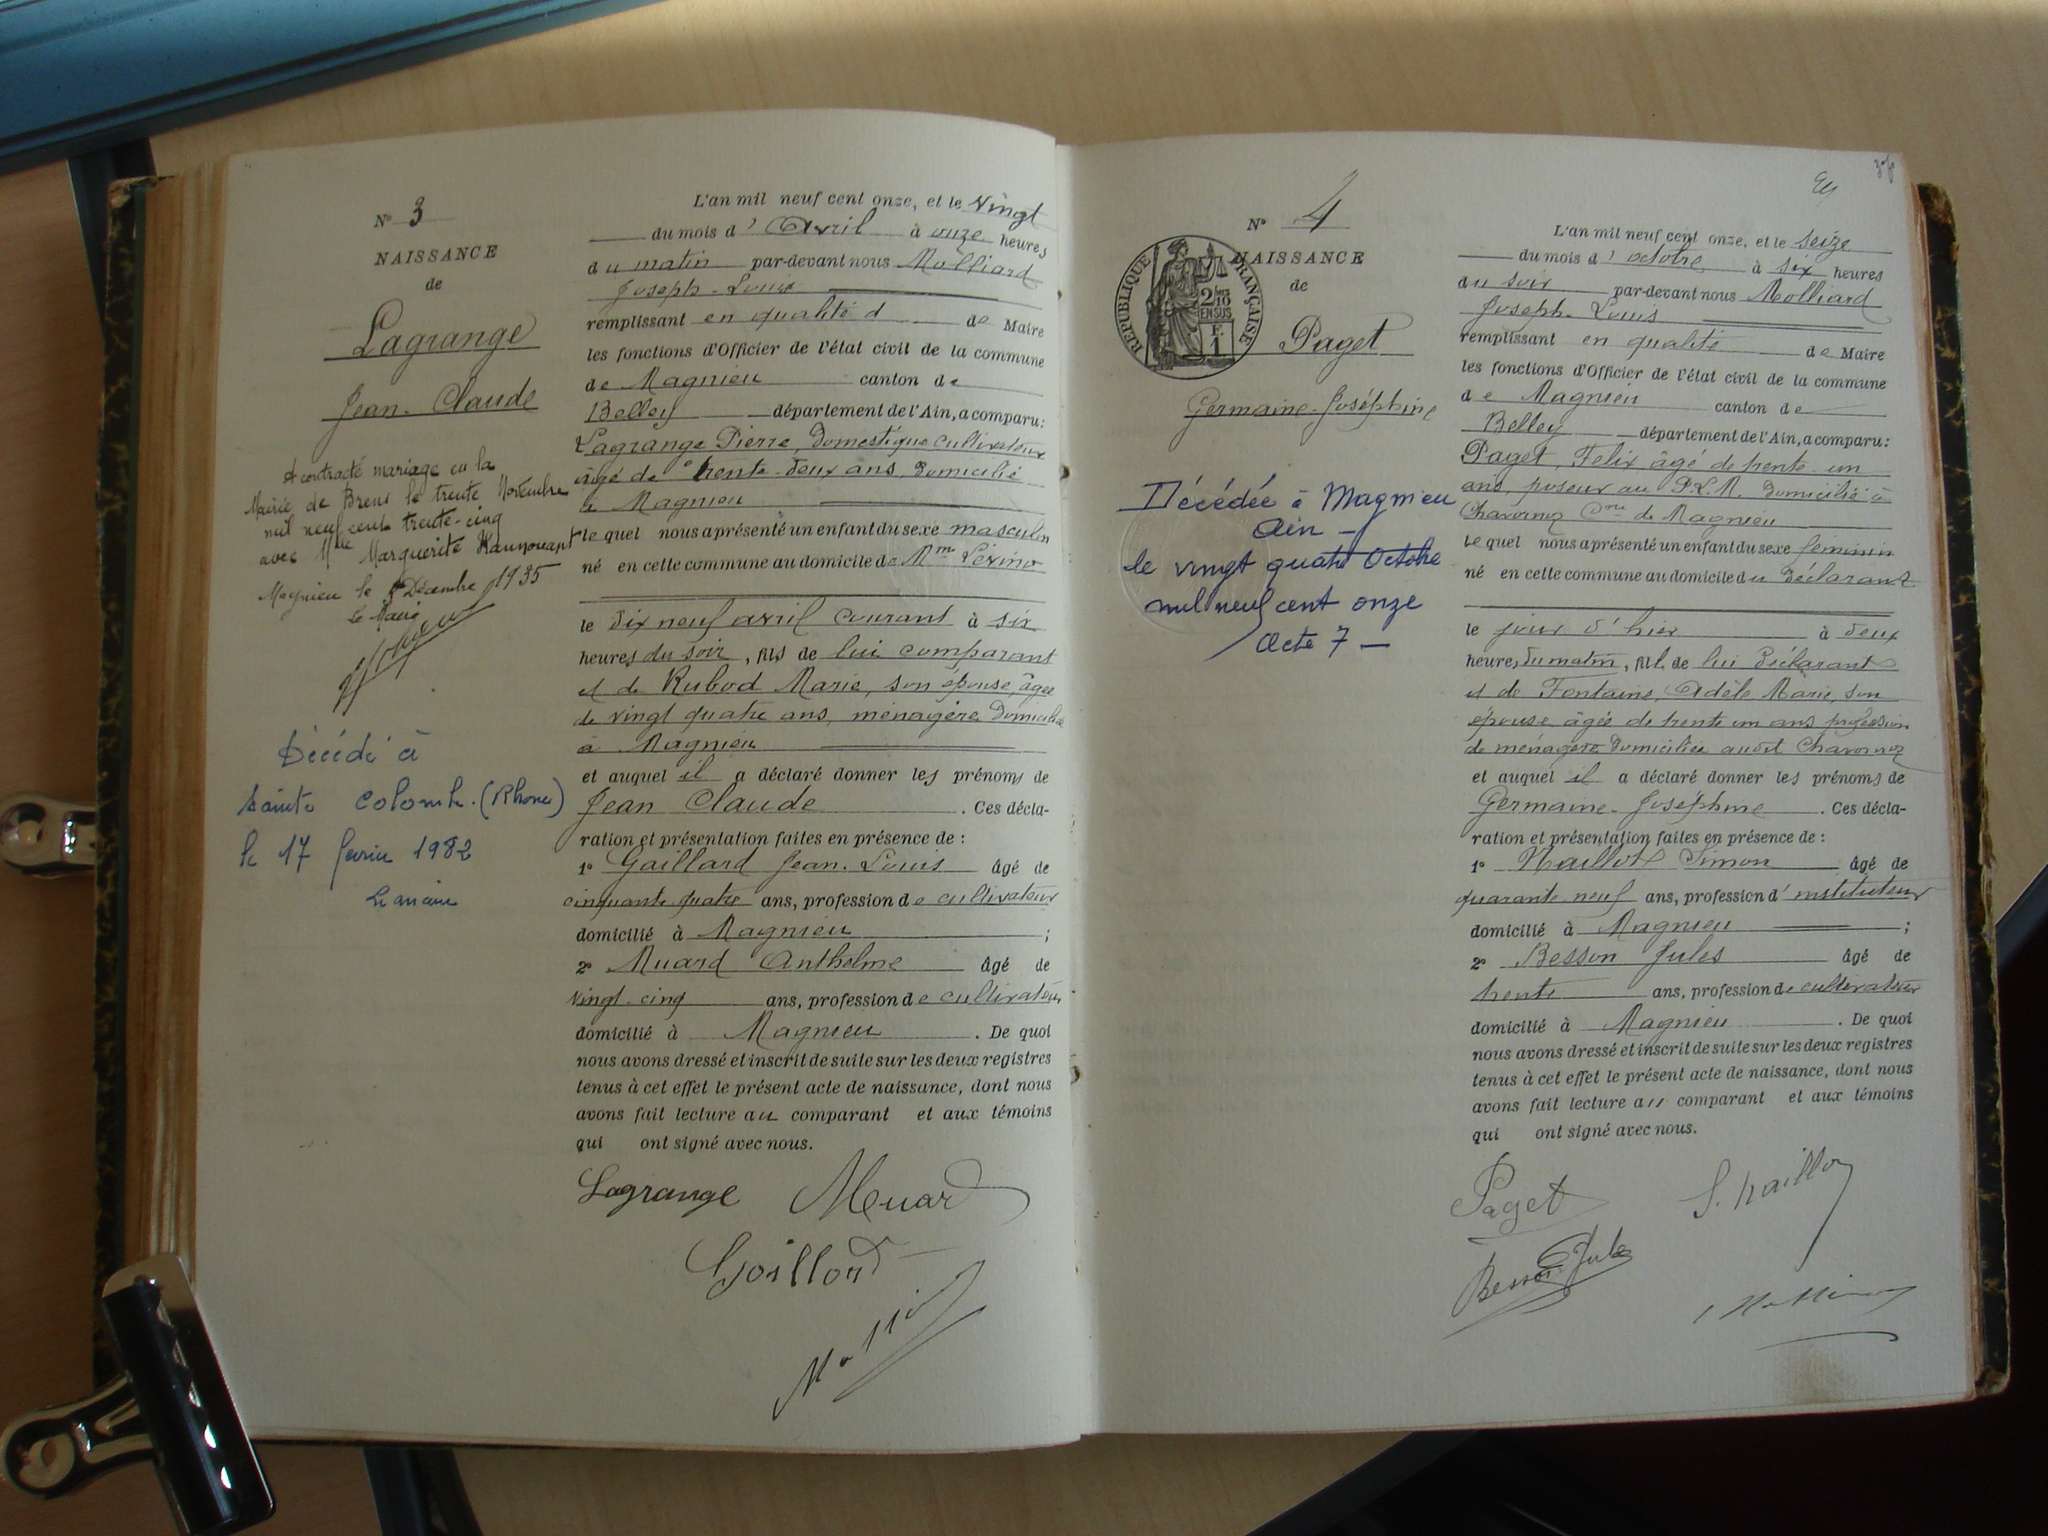 N° 3
NAISSANCE
de
Lagrange
Jean-Claude
A contracté mariage en la
Mairie de Brens le trente Novembre
mil neuf cent trente-cinq
avec Mlle Marguerite
Magnieu le Décembre 1935
Le Maire
Décédé à
Sainte Colombe (Rhone)
le 17 fevrier 1982
L'an mil neuf cent onze, et le vingt
du mois d'Avril à onze heures
du matin par-devant nous Molliard
Joseph-Louis
remplissant en qualité d de Maire
les fonctions d'Officier de l'état civil de la commune
de Magnieu canton de
Belley département de l'Ain, a comparu:
Lagrange Pierre, domestique cultivateur
âgé de trente-deux ans, domicilié
à Magnieu
lequel nous a présenté un enfant du sexe masculin
né en cette commune au domicile de Mme
le dix neuf avril courant à six
heures du soir, fils de lui comparant
et de Rubod Marie, son épouse, âgée
de vingt quatre ans, ménagère domiciliée
à Magnieu
et auquel il a déclaré donner les prénoms de
Jean Claude. Ces décla-
ration et présentation faites en présence de:
1° Gaillard Jean-Louis âgé de
cinquante quatre ans, profession de cultivateur
domicilié à Magnieu;
2° Muard Anthelme âgé de
vingt-cinq ans, profession de cultivateur
domicilié à Magnieu. De quoi
nous avons dressé et inscrit de suite sur les deux registres
tenus à cet effet le présent acte de naissance, dont nous
avons fait lecture au comparant et aux témoins
qui ont signé avec nous.
Lagrange Muard
Gaillard
N° 4
NAISSANCE
de
RÉPUBLIQUE FRANÇAISE
2/10
EN SUS
F.
1
Paget
Germaine-Joséphine
Décédée à Magnieu
Ain
le vingt quatre Octobre
mil neuf cent onze
Acte 7
L'an mil neuf cent onze, et le seize
du mois d'octobre à six heures
du soir par-devant nous Molliard
Joseph-Louis
remplissant en qualité de Maire
les fonctions d'Officier de l'état civil de la commune
de Magnieu canton de
Belley département de l'Ain, a comparu:
Paget, Felix âgé de trente-un
ans, poseur au P.L.M. domicilié à
Chavornoz Cne de Magnieu
lequel nous a présenté un enfant du sexe féminin
né en cette commune au domicile du déclarant
le jour d'hier à deux
heures du matin, fil de lui déclarant
et de Fontaine, Adèle Marie, son
épouse âgée de trente un ans profession
de ménagère domiciliée audit Chavornoz
et auquel il a déclaré donner les prénoms de
Germaine-Joséphine. Ces décla-
ration et présentation faites en présence de:
1° Simon âgé de
quarante neuf ans, profession d'instituteur
domicilié à Magnieu;
2° Besson Jules âgé de
trente ans, profession de cultivateur
domicilié à Magnieu. De quoi
nous avons dressé et inscrit de suite sur les deux registres
tenus à cet effet le présent acte de naissance, dont nous
avons fait lecture au comparant et aux témoins
qui ont signé avec nous.
Paget
Besson Jules